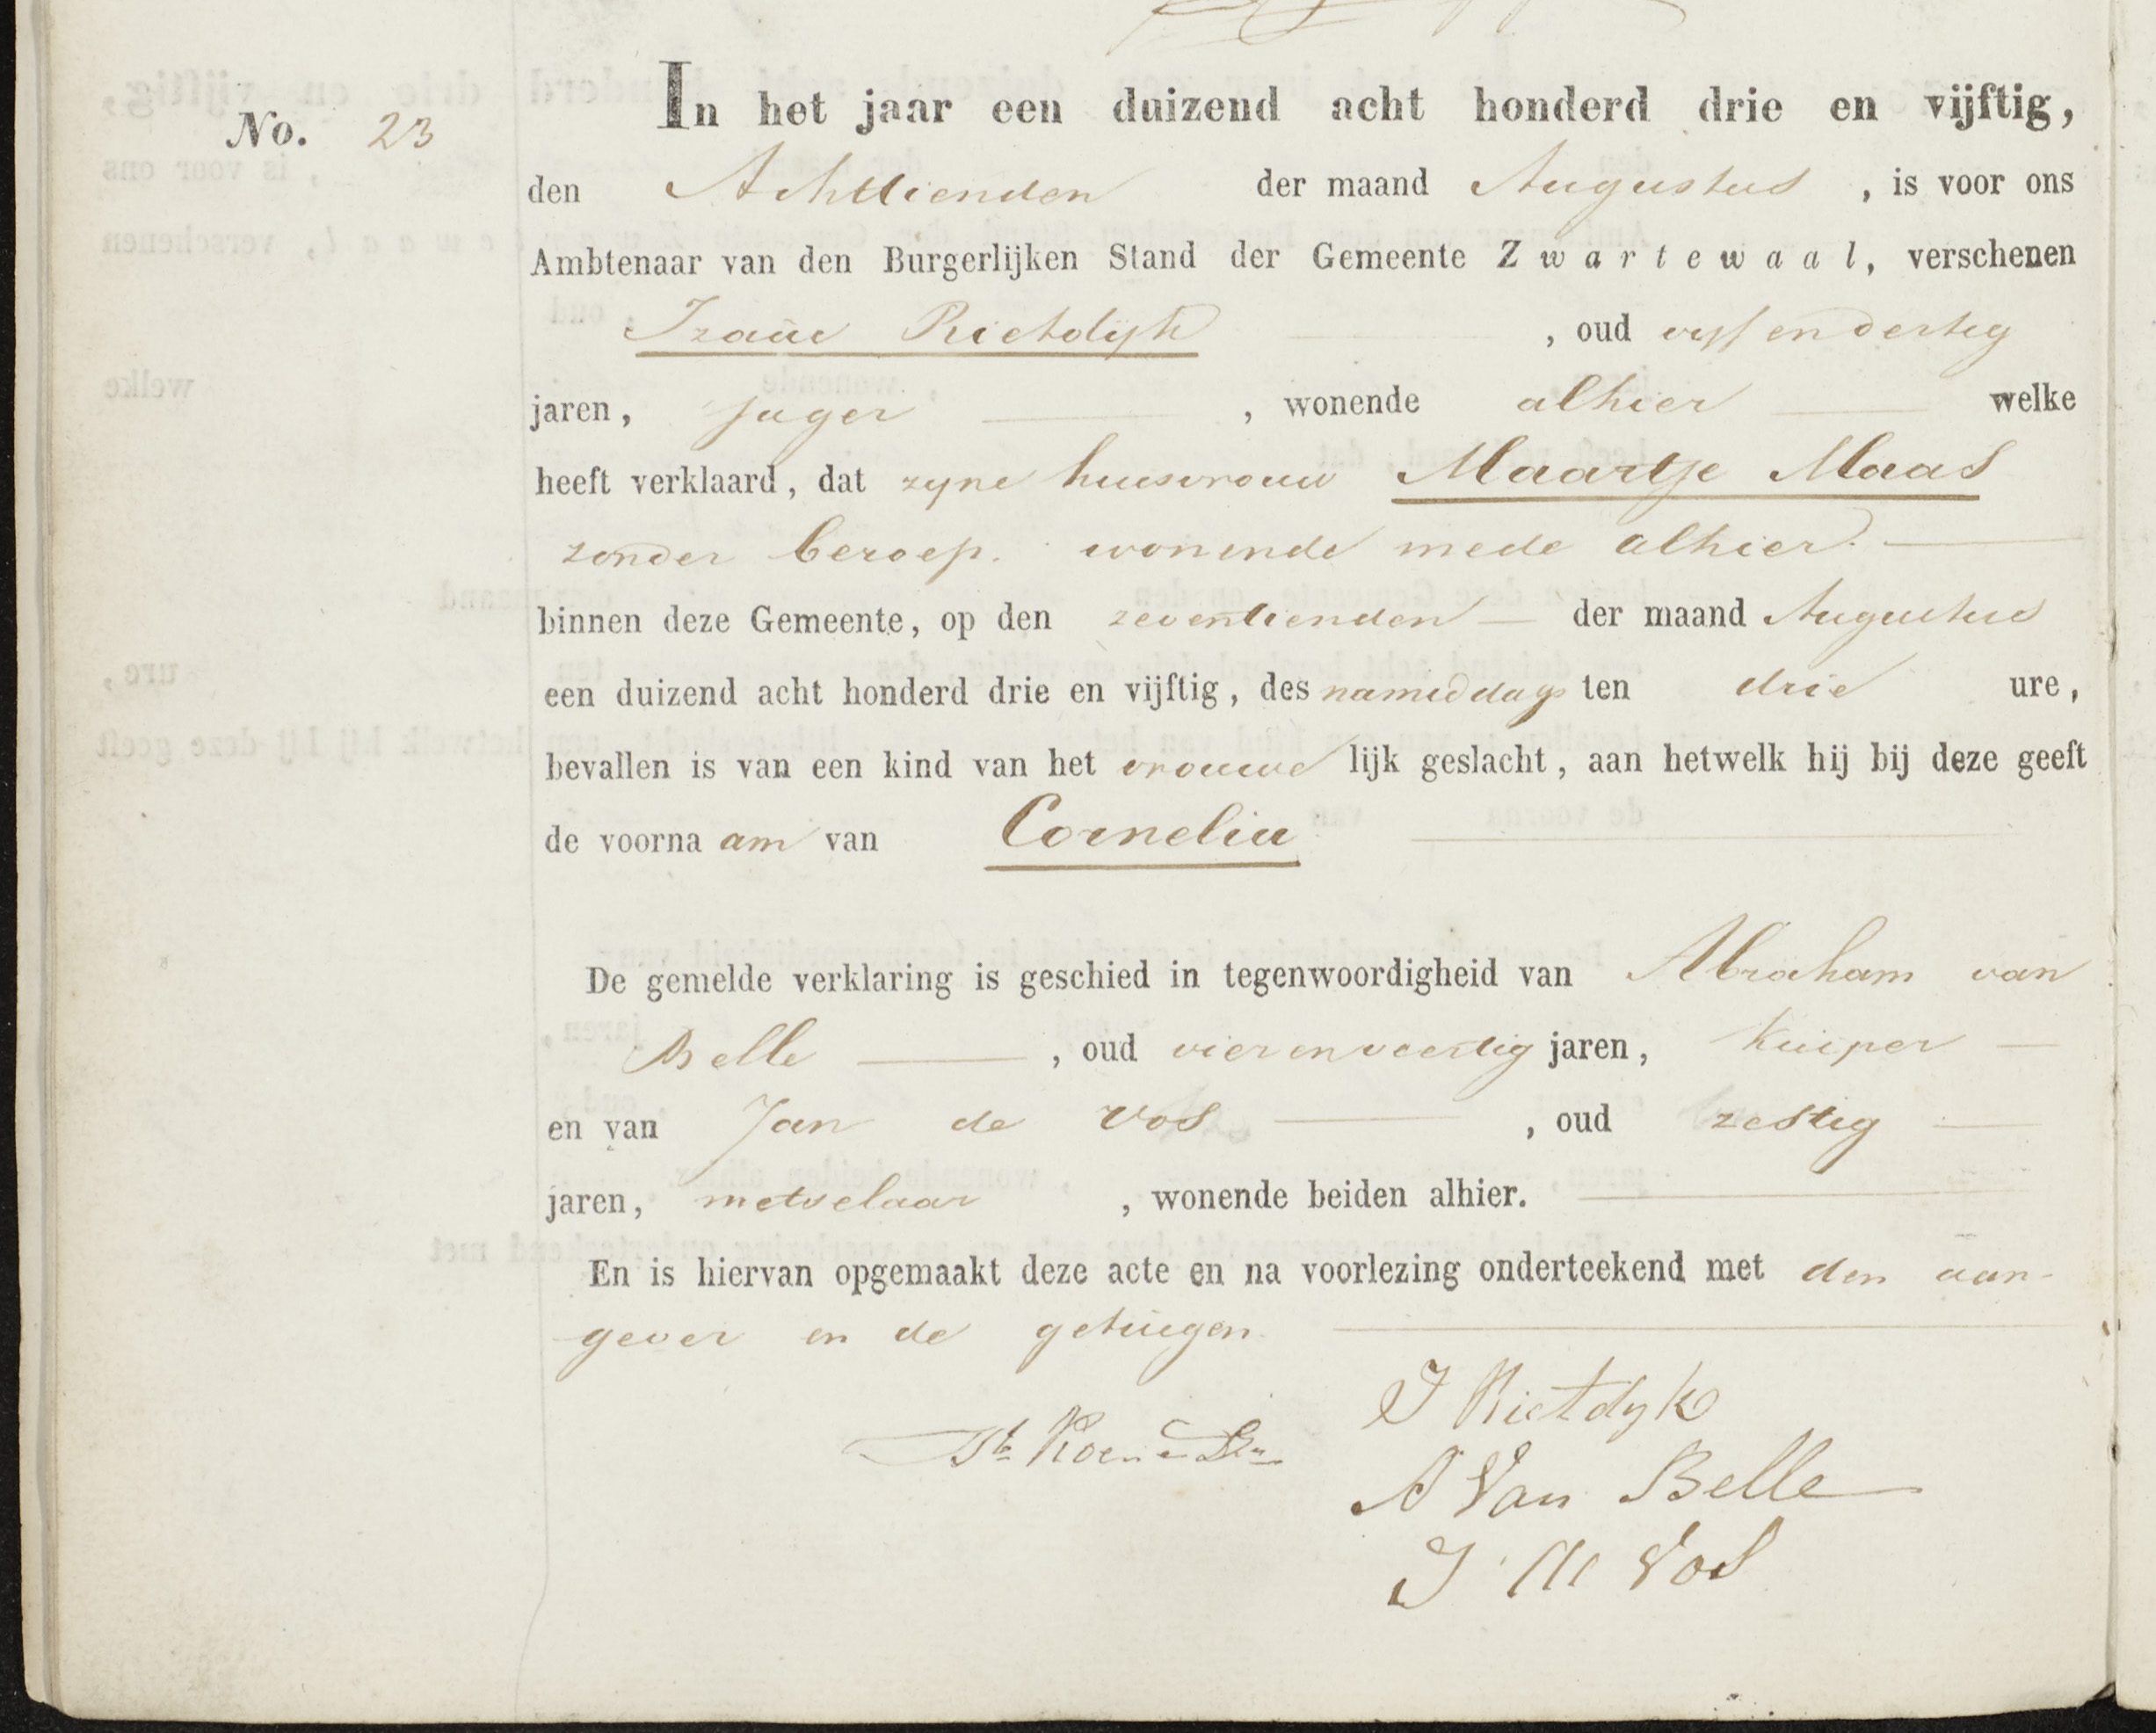 No. 23
In het jaar een duizend acht honderd drie en vijftig,
den Achttienden der maand Augustus , is voor ons
Ambtenaar van den Burgerlijken Stand der Gemeente Zwartewaal, verschenen
Izaäc Rietdijk , oud vijf en dertig
jaren, jager , wonende alhier welke
heeft verklaard, dat zijne huisvrouw Maartje Maas
zonder beroep. wonende mede alhier.
binnen deze Gemeente, op den zeventienden der maand Augustus
een duizend acht honderd drie en vijftig, des namiddags ten drie ure,
bevallen is van een kind van het vrouwe lijk geslacht, aan hetwelk hij bij deze geeft
de voorna am van Cornelia
De gemelde verklaring is geschied in tegenwoordigheid van Abraham van
Belle , oud vier en veertig jaren, Kuiper
en van Jan de Vos , oud zestig
jaren, metselaar , wonende beiden alhier.
En is hiervan opgemaakt deze acte en na voorlezing onderteekend met den aan-
gever en de getuigen
I Rietdyk
A Van Belle
J de Vos